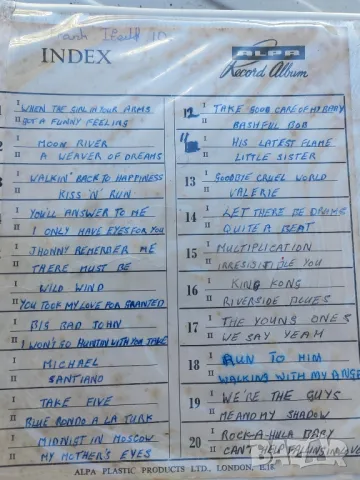 INDEX
ALPA
Record Album
1 I WHEN THE GIRL IN YOUR ARMS
II GOT A FUNNY FEELING
2 I MOON RIVER
II A WEAVER OF DREAMS
3 I WALKIN' BACK TO HAPPINESS
II KISS 'N' RUN
I YOU'LL ANSWER TO ME
II I ONLY HAVE EYES FOR YOU
I JHONNY REMEMBER ME
II THERE MUST BE
I WILD WIND
II YOU TOOK MY LOVE FOR GRANTED
I BIG BAD JOHN
II I WON'T GO HUNTIN WITH YOU JAKE
I MICHAEL
II SANTIANO
I TAKE FIVE
II BLUE RONDO A LA TURK
I MIDNIGT IN MOSCOW
II MY MOTHER'S EYES
12 I TAKE GOOD CARE OF MY BABY
II BASHFUL BOB
I HIS LATEST FLAME
II LITTLE SISTER
13 I GOODBYE CRUEL WORLD
II VALERIE
14 I LET THERE BE DRUMS
II QUITE A BEAT
15 I MULTIPLICATION
II IRRESISTIBLE YOU
16 I KING KONG
II RIVERSIDE BLUES
17 I THE YOUNG ONES
II WE SAY YEAH
18 I RUN TO HIM
II WALKING WITH MY ANGE
19 I WE'RE THE GUYS
II ME AND MY SHADOW
20 I ROCK-A-HULA BABY
II CAN'T HELP FALLING IN LOVE
ALPA PLASTIC PRODUCTS LTD., LONDON, E.18